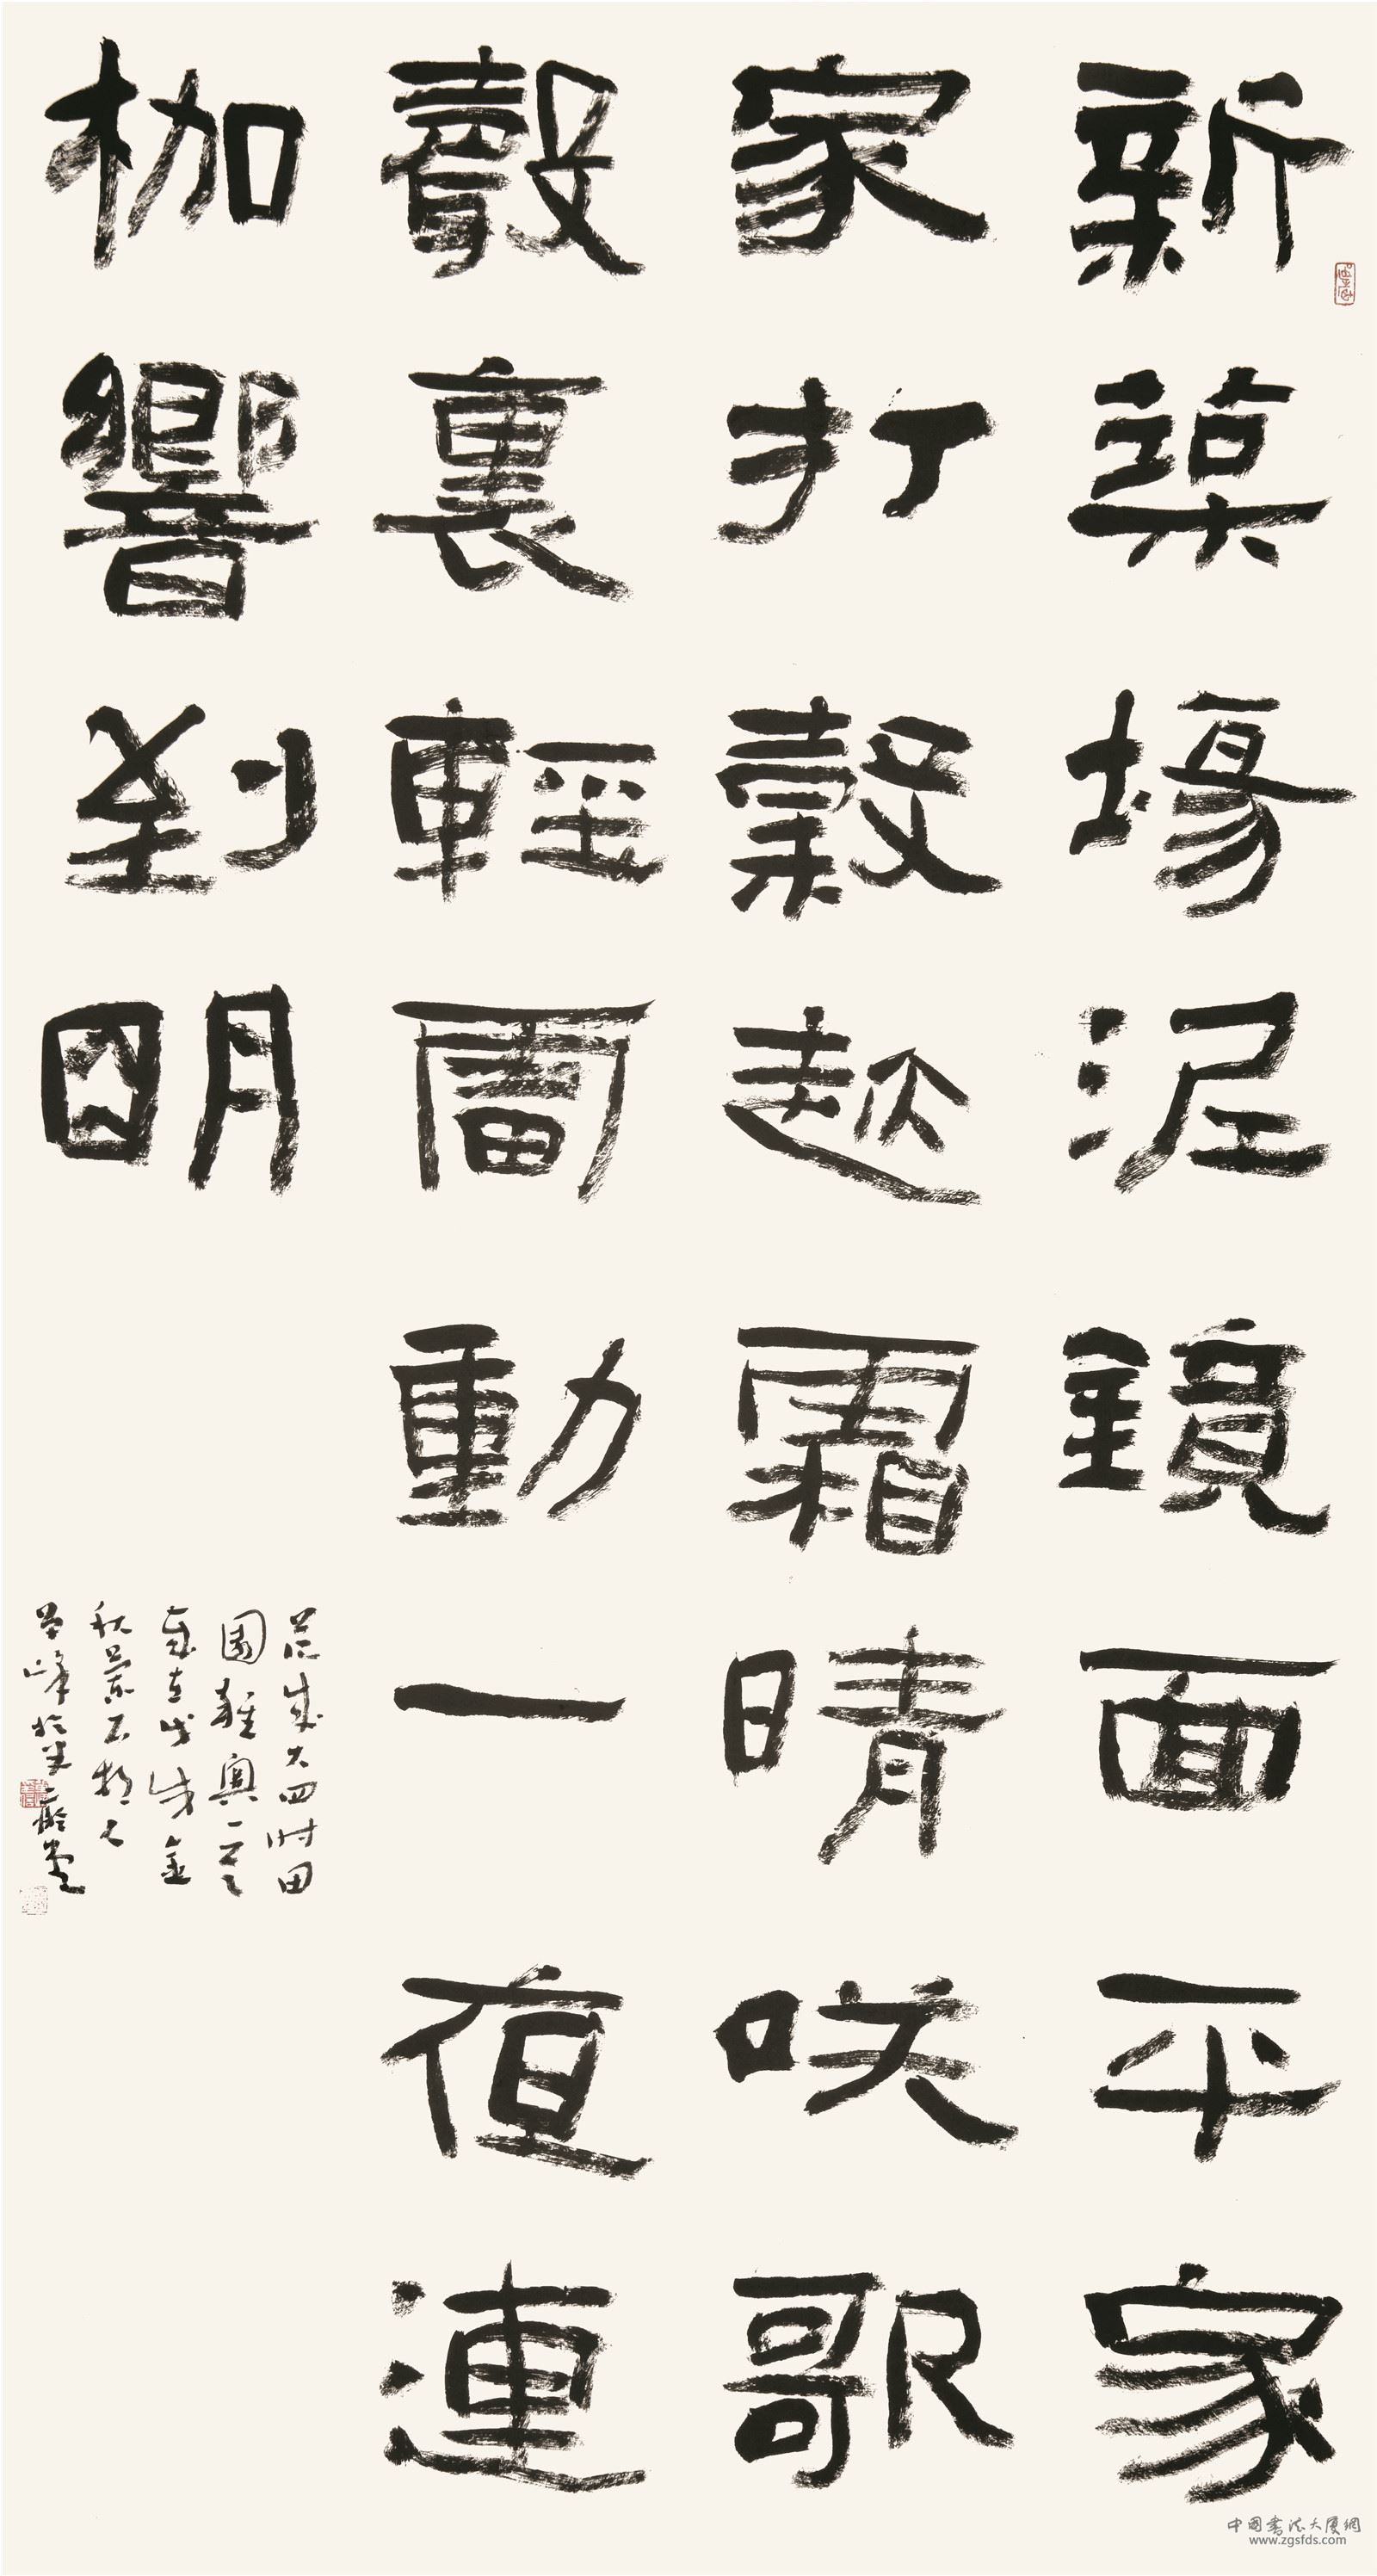 新築塲泥鏡面平家
家打穀趂霜晴咲歌
聲裏輕雷動一夜連
枷響到明
范成大四时田
園雜興一首
歲在戊戌金
秋
峰於
中国书法大厦網
www.zgsfds.com